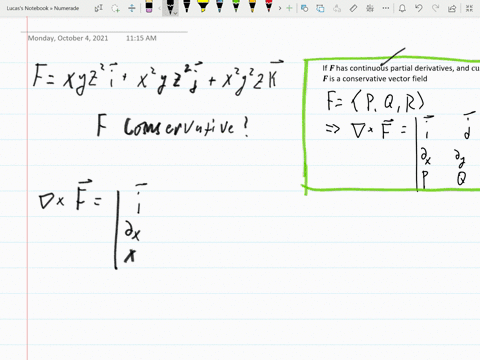 Lucas's Notebook » Numerade
Monday, October 4, 2021 11:15 AM
F = xyz² i⃗ + x²yz² j⃗ + x²y²z k⃗
F conservative?
If F has continuous partial derivatives, and cu
F is a conservative vector field
F = ⟨P, Q, R⟩
⇒ ∇ × F⃗ = | i⃗ j⃗
∂x ∂y
P Q
∇ × F⃗ = | i⃗
∂x
x